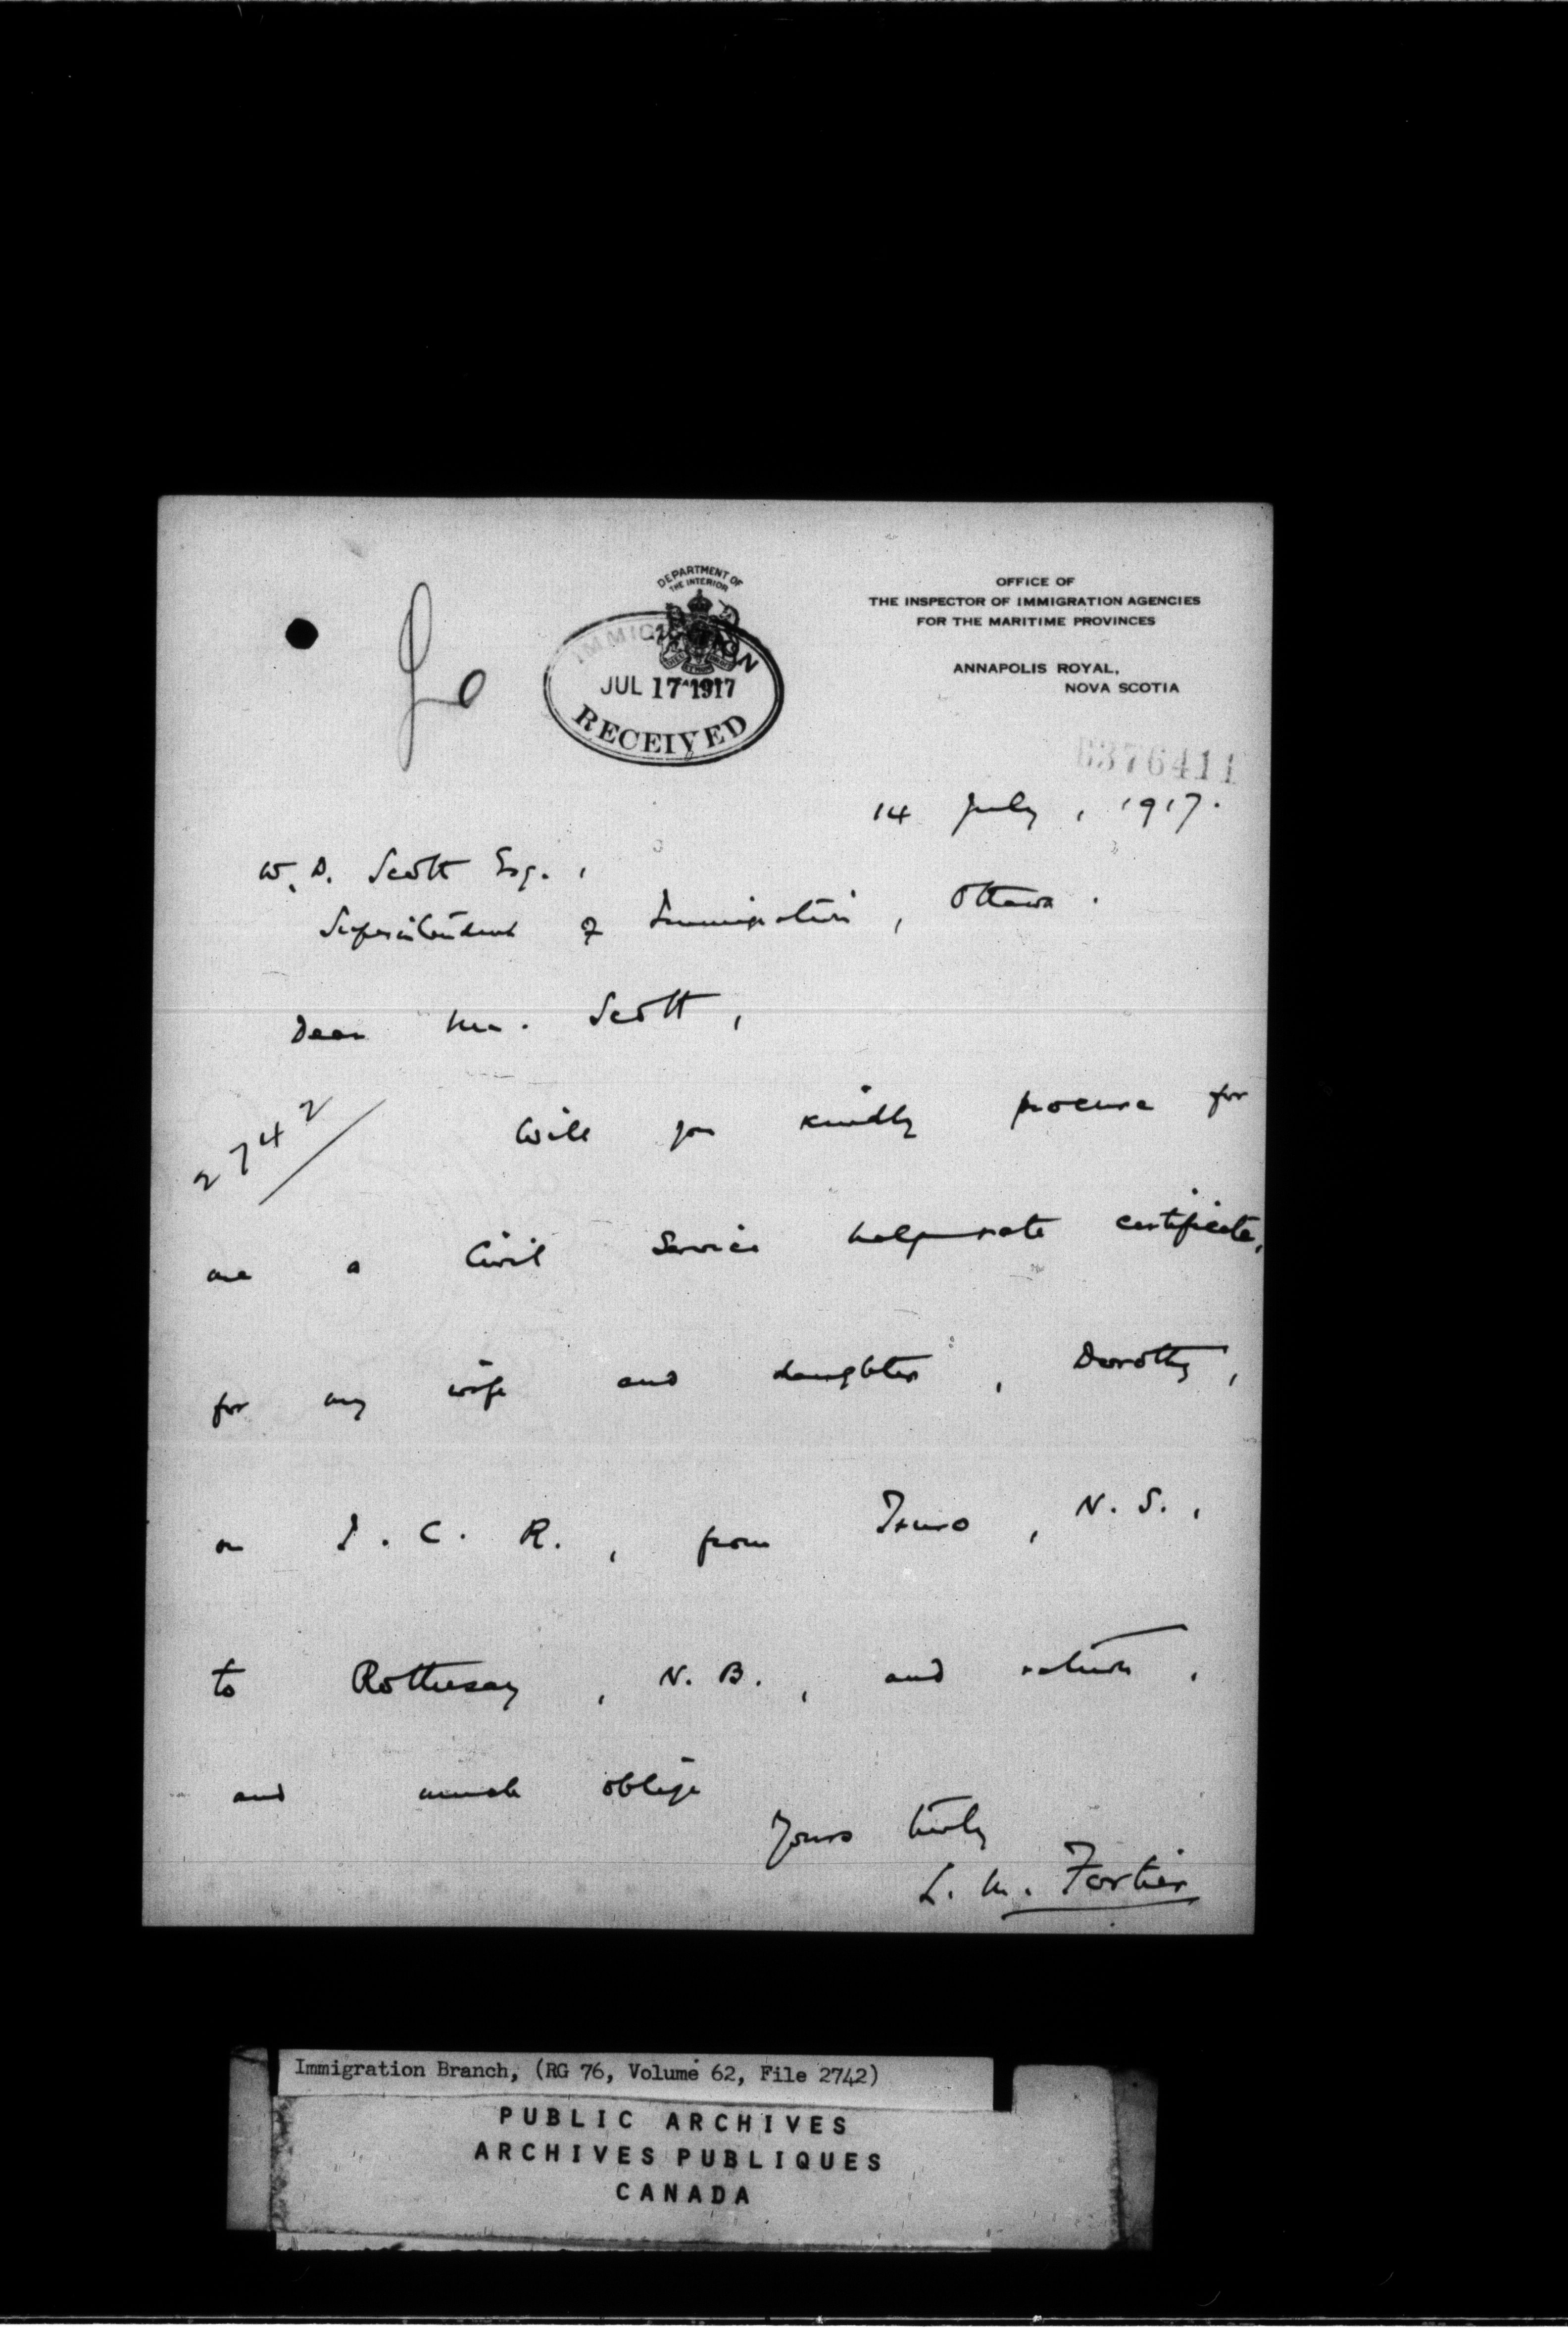 DEPARTMENT OF
THE INTERIOR
OFFICE OF
THE INSPECTOR OF IMMIGRATION AGENCIES
FOR THE MARITIME PROVINCES
ANNAPOLIS ROYAL,
NOVA SCOTIA
IMMIGRATION
JUL 17 1917
RECEIVED
376411
14 July, 1917.
W. D. Scott Esq.,
Superintendent of Immigration, Ottawa.
Dear Mr. Scott,
2742
Will you kindly procure for
me a Civil Service half-rate certificate,
for my wife and daughter, Dorothy,
on I. C. R., from Truro, N. S.,
to Rothesay, N. B., and return,
and much oblige
Yours truly
L. M. Fortier
Immigration Branch, (RG 76, Volume 62, File 2742)
PUBLIC ARCHIVES
ARCHIVES PUBLIQUES
CANADA